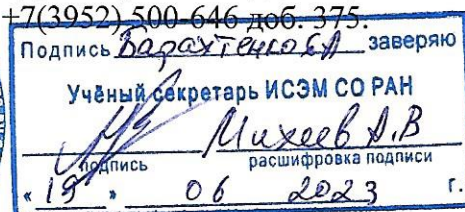 +7(3952) 500-646 доб. 375.
Подпись Барахтенко Е.А заверяю
Учёный секретарь ИСЭМ СО РАН
Михеев А.В
подпись расшифровка подписи
« 19 » 06 2023 г.